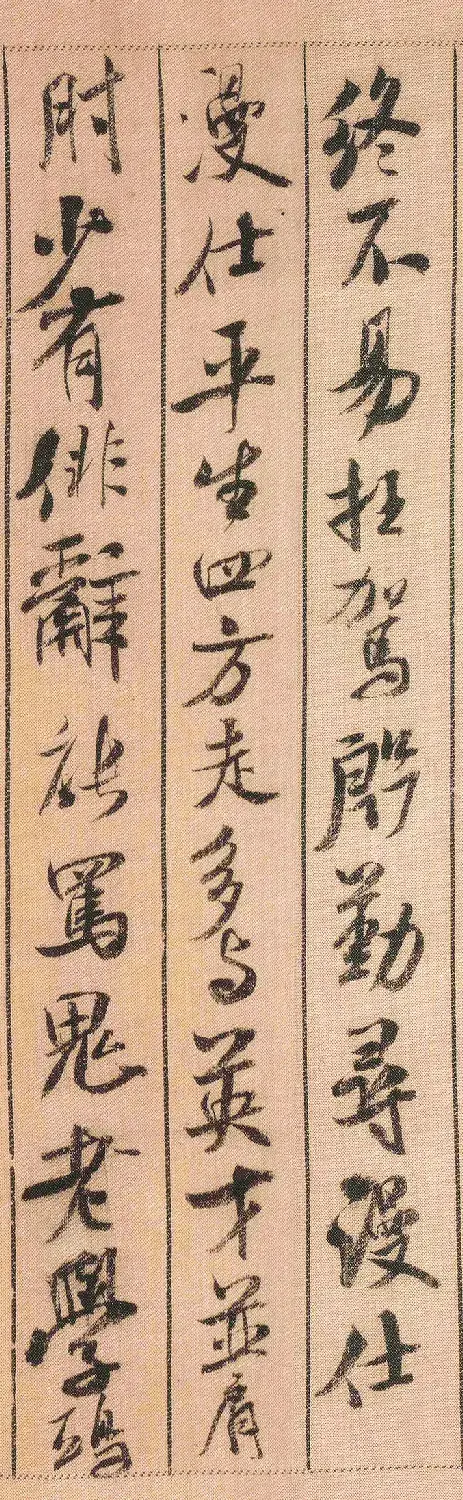 終不易枉駕殷勤尋漫仕
漫仕平生四方走多与英才並肩
肘少有俳辭能罵鬼老學鵄